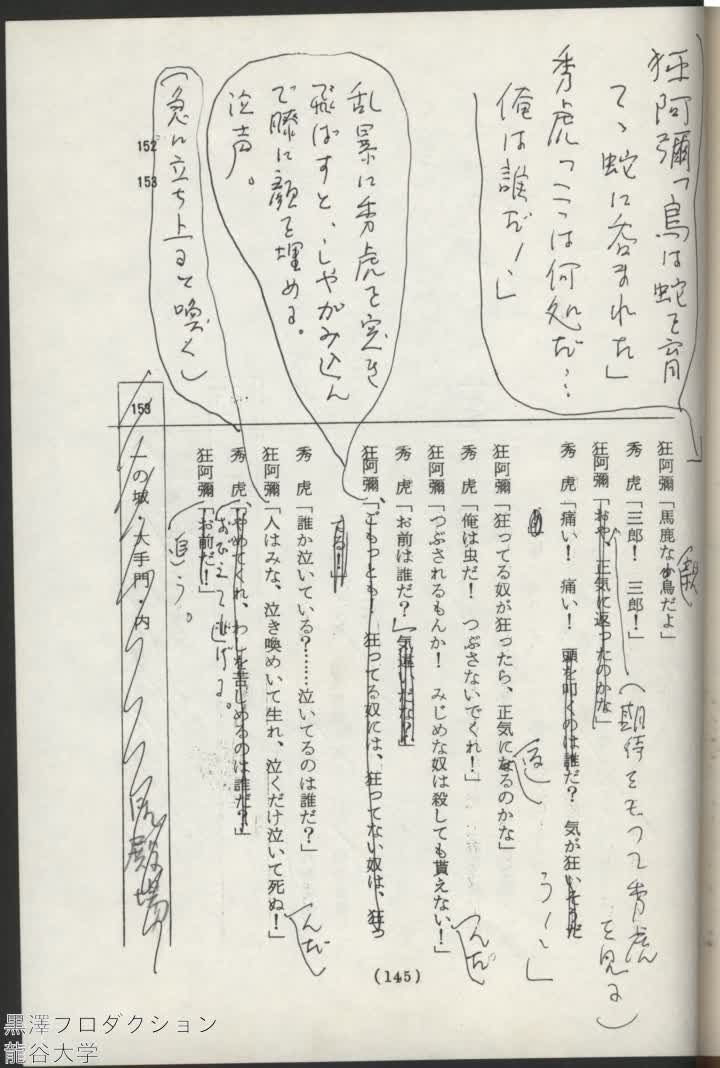 狂阿彌「鳥は蛇を育
て、蛇に呑まれた」
秀虎「こゝは何処だ…
俺は誰だ！」
乱暴に秀虎を突き
飛ばすと、しゃがみ込ん
で膝に顔を埋める。
泣声。
（急に立ち上ると喚く）
152
153
狂阿彌「馬鹿な小鳥だよ」
親
秀　虎「三郎！　三郎！」
（期待をもって秀虎
を見る）
狂阿彌「おや、正気に返ったのかな」
秀　虎「痛い！　痛い！　頭を叩くのは誰だ？　気が狂いそうだ
う！」
狂阿彌「狂ってる奴が狂ったら、正気になるのかな」
る
秀　虎「俺は虫だ！　つぶさないでくれ！」
狂阿彌「つぶされるもんか！　みじめな奴は殺しても貰えない！」
んだ
秀　虎「お前は誰だ？」気違いだな？」
狂阿彌「ごもっとも！　狂ってる奴には、狂ってない奴は、狂っ
てる！」
秀　虎「誰か泣いている？……泣いてるのは誰だ？」
狂阿彌「人はみな、泣き喚めいて生れ、泣くだけ泣いて死ぬ！」
んだ
秀　虎「やめてくれ、わしを苦しめるのは誰だ？」
おびえて逃げる。
狂阿彌「お前だ！」
追う。
153
一の城・大手門・内
(145)
黒澤プロダクション
龍谷大学